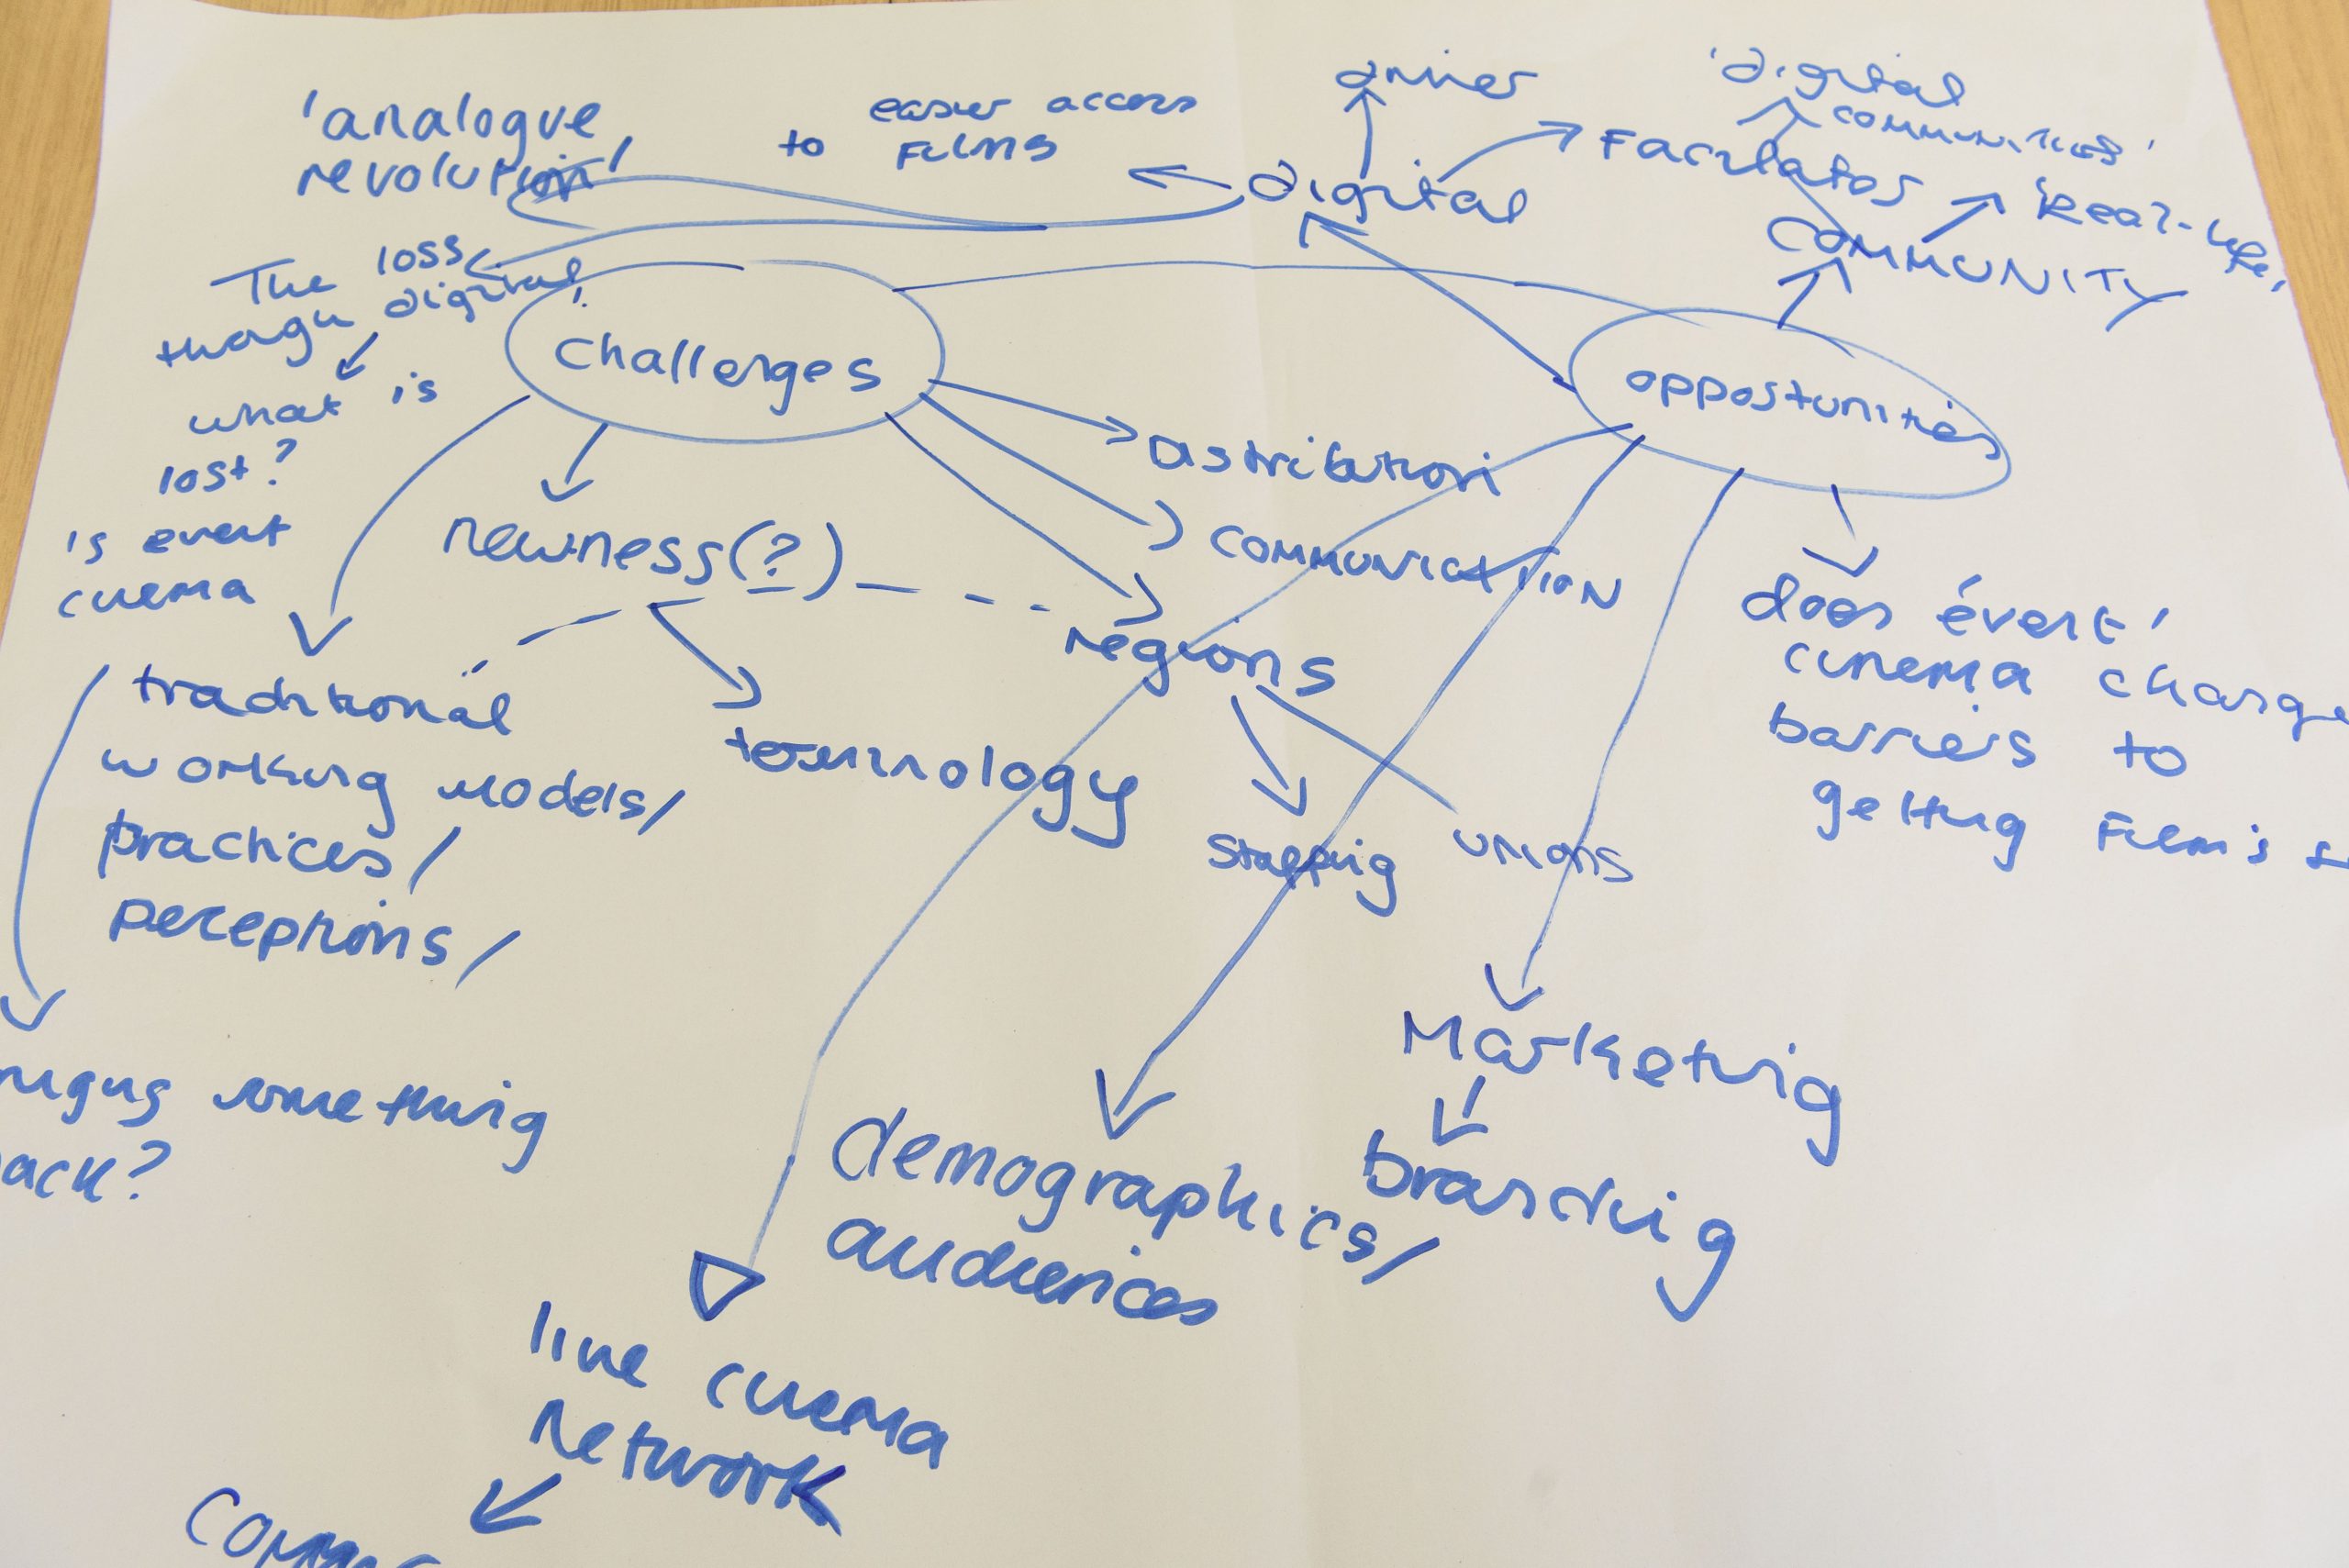 'analogue
revolution'
easier access
to films
digital
'digital
communities'
Facilitates
'Real-life'
COMMUNITY
The loss
though digital!
what is
lost?
is event
cinema
challenges
opportunities
Distribution
communication
newness(?)
regions
terminology
staffing
unions
traditional
working models/
practices/
perceptions/
something
does 'event'
cinema change
barriers to
getting films
Marketing
branding
demographics/
audiences
live cinema
network